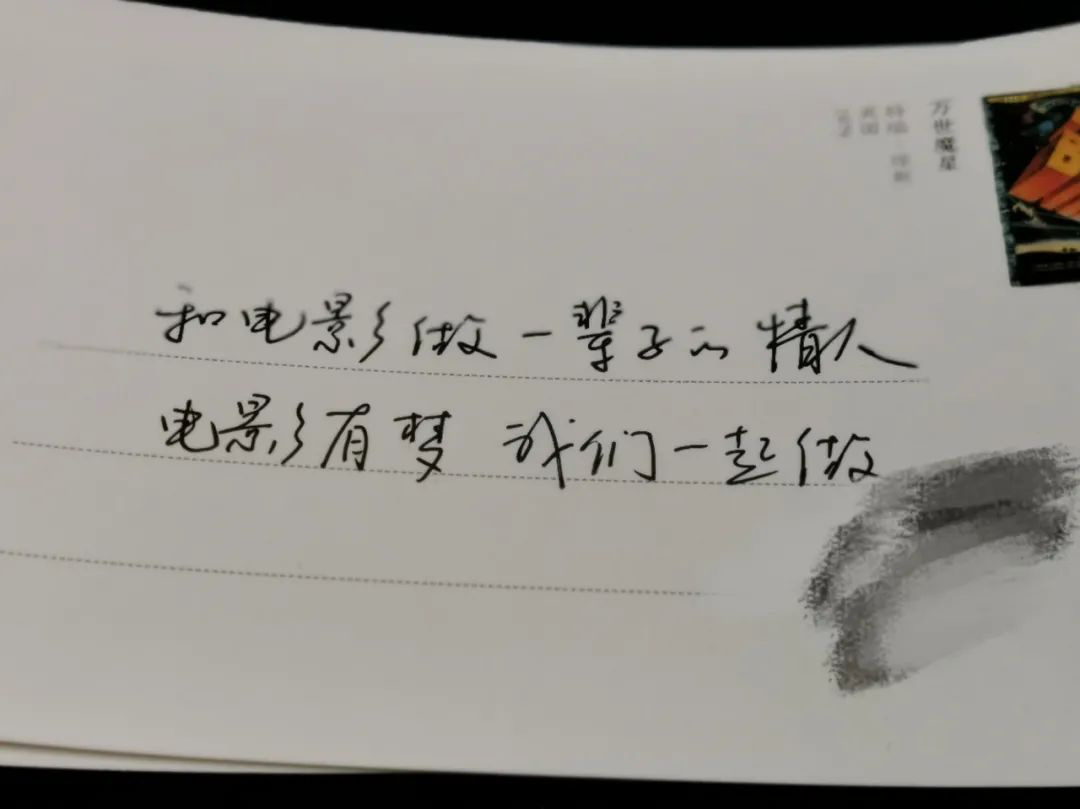 万世魔星
和电影做一辈子的情人
电影有梦 我们一起做